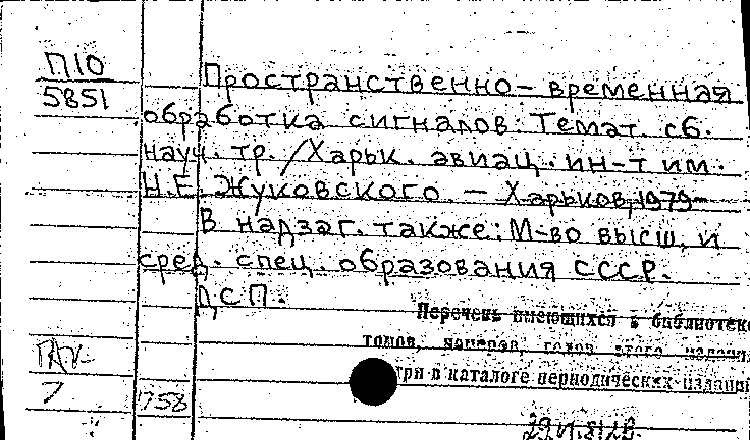 П10
5851
Пространственно-временная
обработка сигналов: Темат. сб.
науч. тр. / Харьк. авиац. ин-т им.
Н.Е. Жуковского. — Харьков, 1979—
В надзаг. также: М-во высш. и
сред. спец. образования СССР.
ДСП.
Перечень имеющихся в библиотеке
томов, номеров, годов этого издания
три в каталоге периодических изданий
7
758